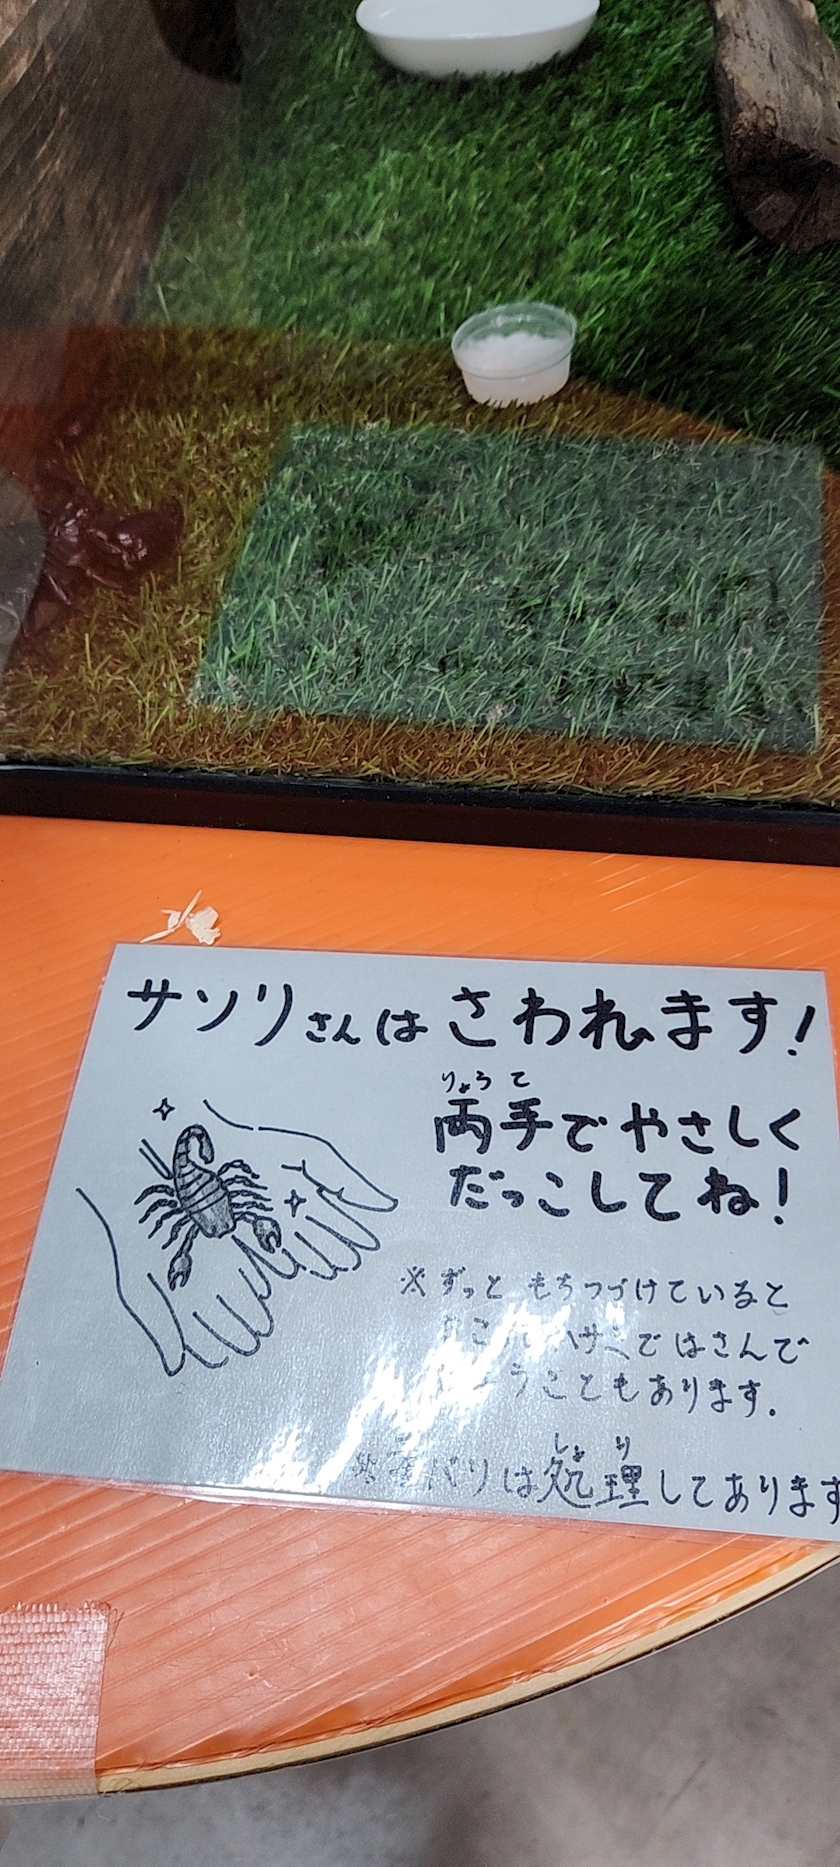 サソリさんは さわれます!
りょうて
両手で やさしく
だっこしてね!
※ずっと もちつづけていると
ハサミで はさんで
うこともあります。
しょり
バリは処理してあります